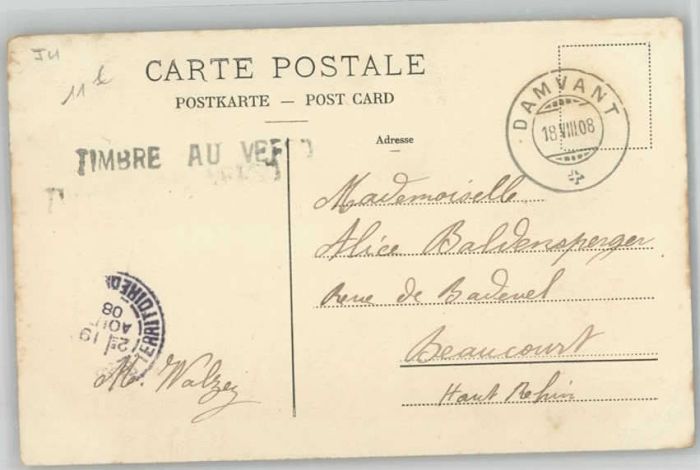 JU
11
CARTE POSTALE
POSTKARTE — POST CARD
DAMVANT
18.VIII.08
TIMBRE AU VE
Adresse
Mademoiselle
Alice Baldensperger
Rue de Badevel
Beaucourt
Haut Rhin
TERRITOIRE
19
AOUT
08
M. Walzer